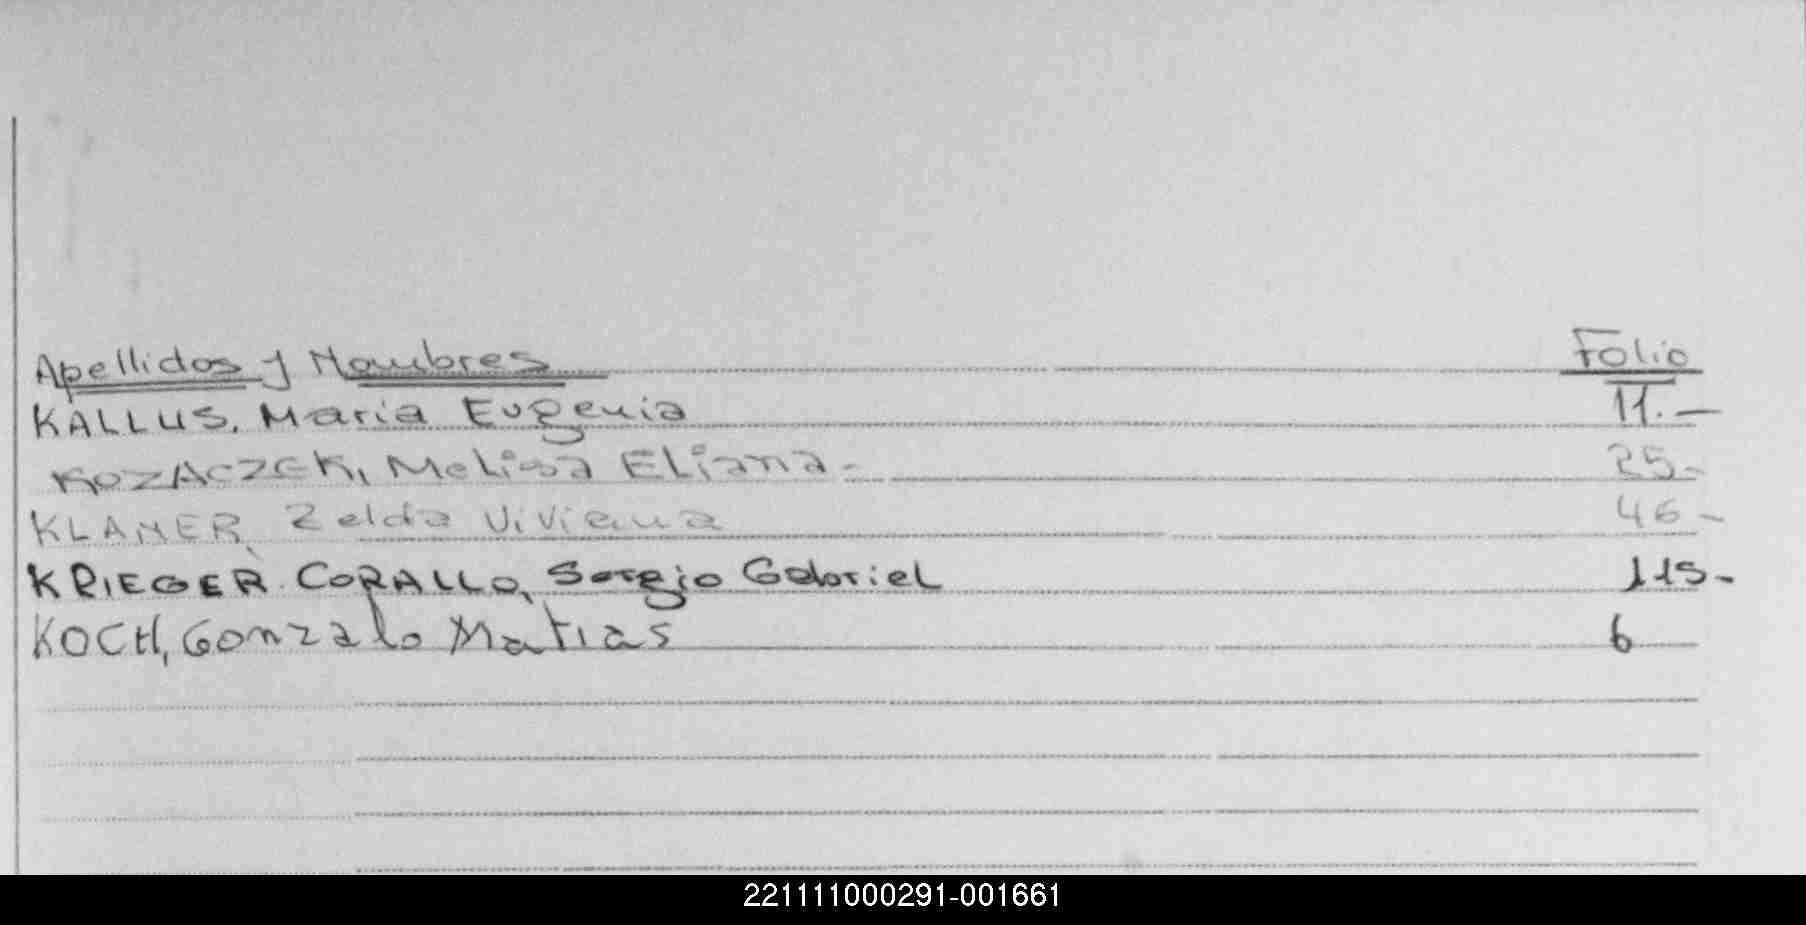 Apellidos y Nombres Folio
KALLUS, Maria Eugenia 11.-
KOZACZEK, Melisa Eliana.- 25-
KLANER, Zelda Viviana 46-
KRIEGER CORALLO, Sergio Gabriel 115-
KOCH, Gonzalo Matias 6
221111000291-001661